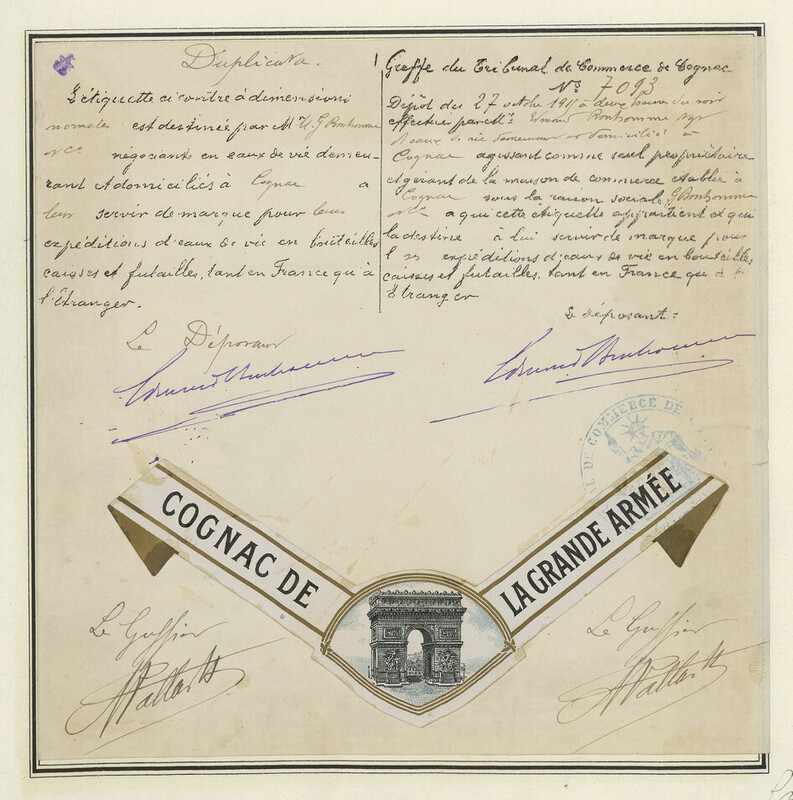 Duplicata.
L'étiquette ci contre à dimensions
normales est destinée par M. G Bonhomme
& Cie négociants en eaux de vie demeu-
rant et domiciliés à Cognac à
leur servir de marque pour leurs
expéditions d'eaux de vie en bouteilles
caisses et futailles, tant en France qu'à
l'Étranger.
Le Déposant
Edmond Bonhomme
Greffe du Tribunal de Commerce de Cognac
No 7093
Dépôt du 27 octobre à deux heures du soir
effectué par Mr Edmond Bonhomme
eaux de vie demeurant et domicilié à
Cognac agissant comme seul propriétaire
et gérant de la maison de commerce établie à
Cognac sous la raison sociale G Bonhomme
& Cie a qui cette étiquette appartient et qui
la destine à lui servir de marque pour
expéditions d'eaux de vie en bouteilles
caisses et futailles, tant en France qu'à l'
Étranger
Le déposant:
Edmond Bonhomme
DE COMMERCE DE
COGNAC DE LA GRANDE ARMÉE
Le Greffier
Le Greffier